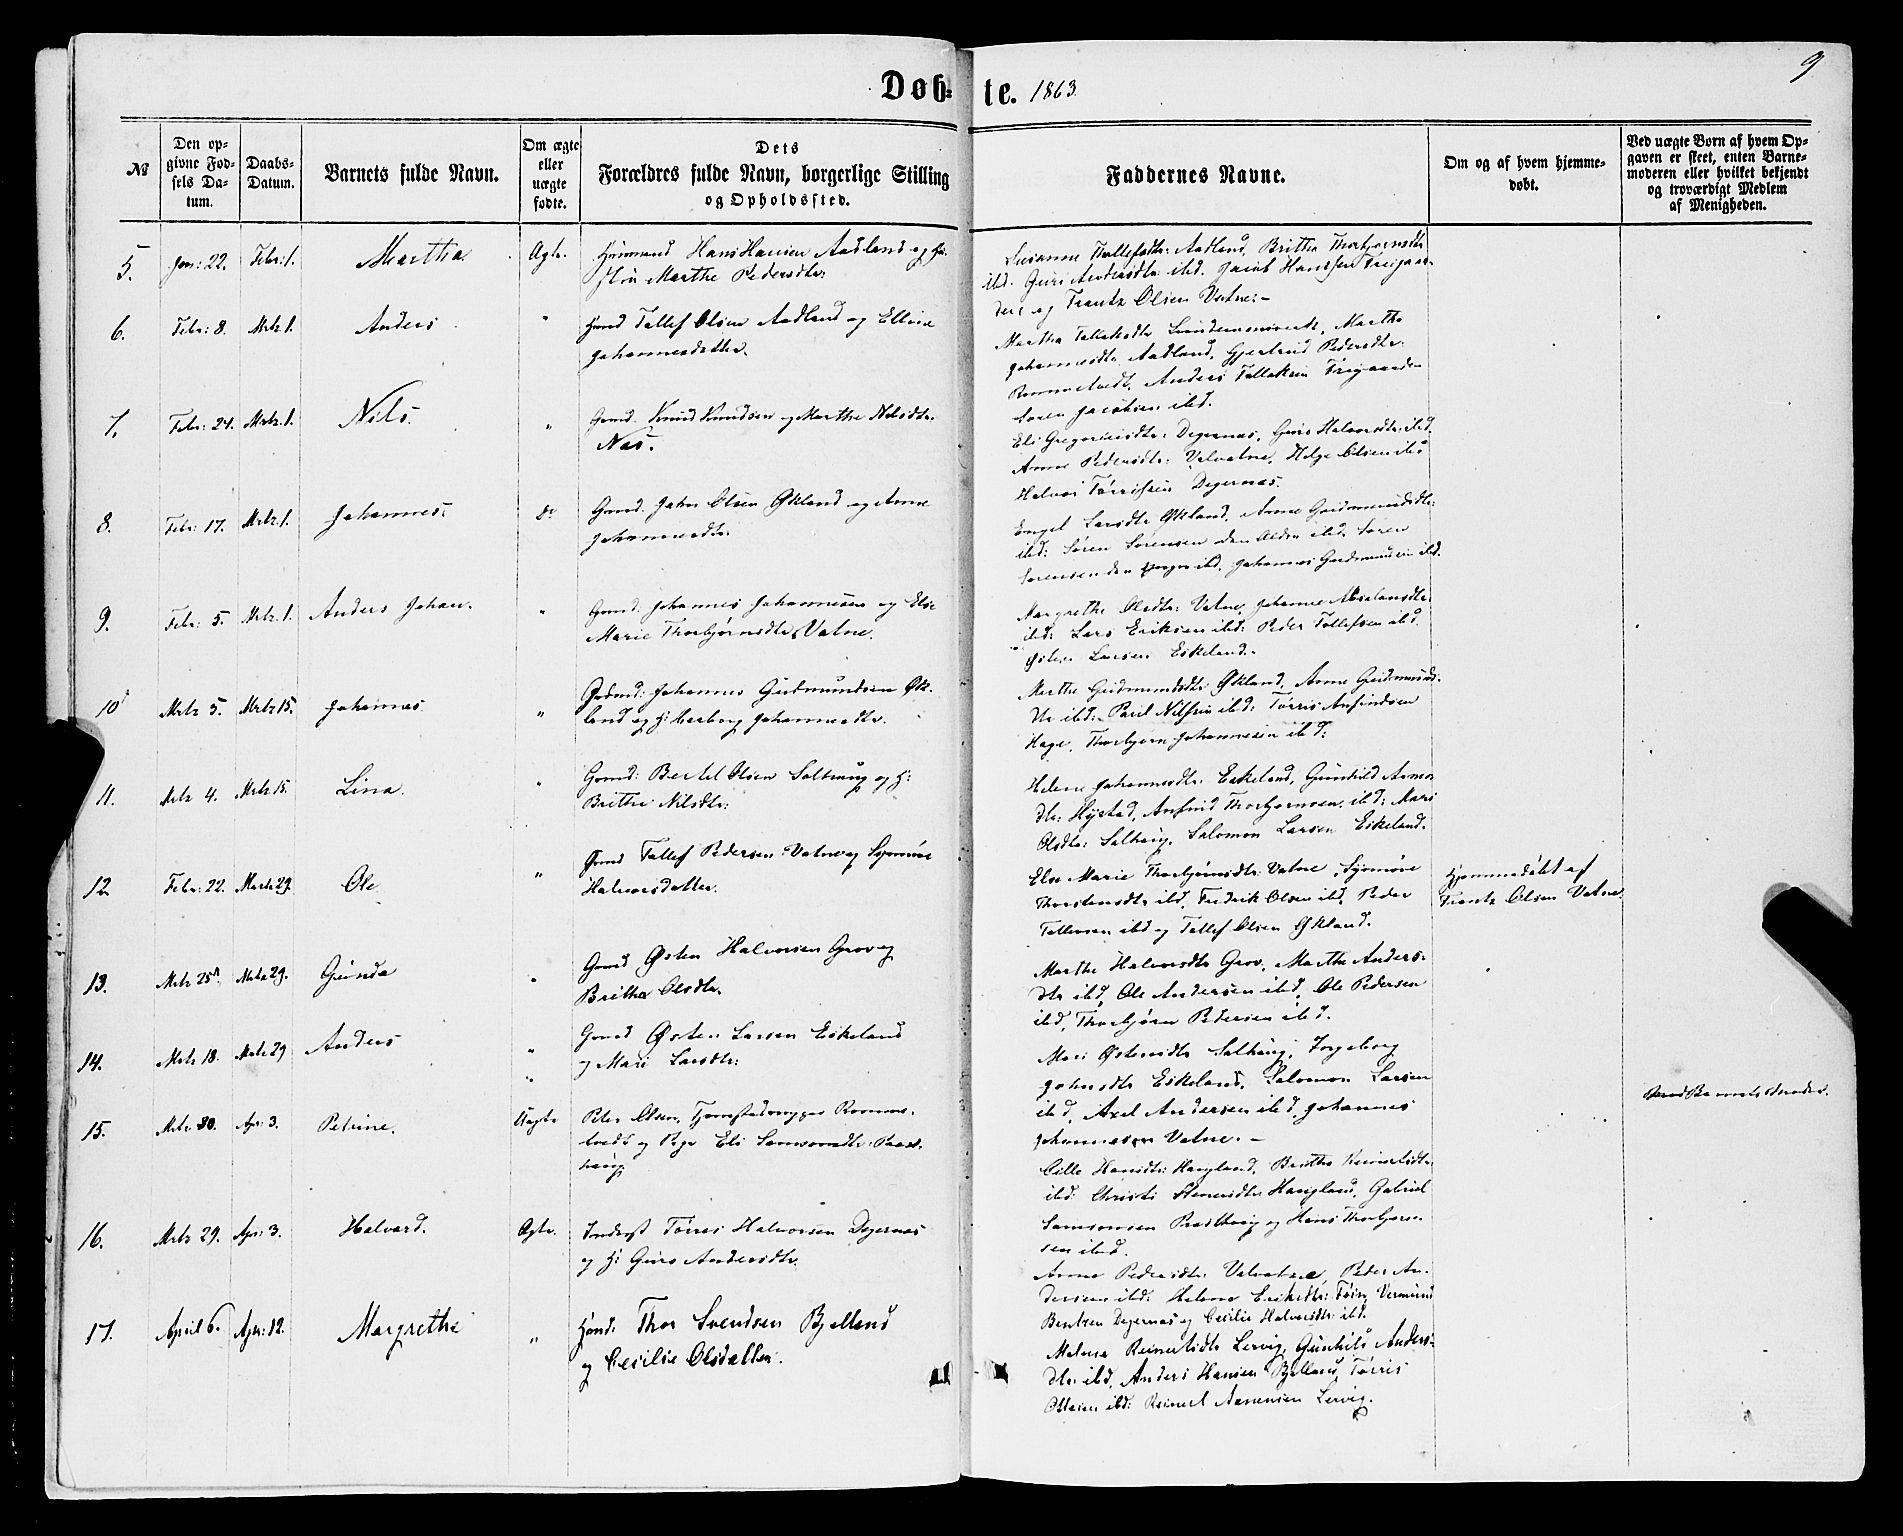 9
Døbte. 1863.
№
Den opgivne Fødsels Datum.
Daabs-Datum.
Barnets fulde Navn.
Om ægte eller uægte fødte.
Dets Forældres fulde Navn, borgerlige Stilling og Opholdssted.
Faddernes Navne.
Om og af hvem hjemmedøbt.
Ved uægte Børn af hvem Opgaven er skeet, enten Barnemoderen eller hvilket bekjendt og troværdigt Medlem af Menigheden.
5. Jan: 22. Febr: 1. Martha Ægte. Huusmand Hans Hansen Aadland og
Marthe Pedersdtr.
Susanne Aadland, Britha Thorbjørnsdtr
ibd. Guri Andersdtr ibd. Jacob Hanssen
og Frantz Olsen Vatne. –
6. Febr: 8. Mrtz. 1. Anders " Gmd Tallef Olsen Aadland og Elline
Johannesdatter.
Martha
Johannesdtr Aadland, Gjertrud Pedersdtr
Rommetvedt, Anders
Jacobsen ibd.
7. Febr: 24. Mrtz. 1. Nils. " Gmd. Knud Knudsen og Marthe Nilsdtr.
Næs.
Eli Degernæs, Guro Halvorsdtr ibd.
Anne Pedersdtr: Valvatne, Helge Olsen ibd
Halvor Tørrissen Degernæs.
8. Febr: 17. Mrtz. 1. Johannes. do Gmd. John Olsen Økland og Anne
Johannesdtr.
Engel Larsdtr Økland, Anne Gudmundsdtr
ibd: Søren Sørensen den Ældre ibd, Søren
Sørensen den Yngre ibd, Johannes Gudmundsen ibd.
9. Febr: 5. Mrtz. 1. Anders Johan. " Gmd: Johannes Johannesen og Else
Marie Thorbjørnsdtr Vatne.
Margrethe Olsdtr: Vatne, Johanne Absalonsdtr
ibd: Lars Eriksen ibd: Peder Tollefsen ibd
Østen Larsen Eskeland. –
10 Mrtz 5. Mrtz 15. Johannes " Gmd: Johannes Gudmundsen Øk-
land og H: Johannesdtr.
Marthe Gudmundsdtr Økland, Anne Gudmunds-
dtr ibd: Poul Nilssen ibd: Tørris Anfindsen
Hage, Thorbjørn Johannesen ibd:
11. Mrtz 4. Mrtz 15. Lina. " Gmd: Bertel Olsen Salthaug og H:
Britha Nilsdtr:
Helene Johannesdtr. Eskeland, Gunhild
dtr: Hystad, Anfind Thorbjørnsen, ibd: Mari
Olsdtr: Salhaug, Salomon Larsen Eskeland.
12. Febr: 22. Martz 29. Ole " Gmd Tallef Pedersen Vatne og Synnøve
Halvorsdatter.
Else Marie Thorbjørnsdtr Vatne, Synnøve
Thorstensdtr ibd, Fredrik Olsen ibd, Peder
Tallevsen ibd og Tallef Olsen Økland.
Hjemmedøbt af
Frantz Olsen Vatne
13. Mrtz 25 Mrtz 29. Gunda " Gmd Østen Halvorsen Grov og
Britha Olsdtr.
Marthe Halvorsdtr Grov, Martha Anders-
dtr ibd, Ole Andersen ibd, Ole Pedersen
ibd, Thorbjørn Pedersen ibd.
14. Mrtz 18. Mrtz 29 Anders " Gmd Østen Larsen Eskeland
og Mari Larsdtr:
Mari Østensdtr Salhaug, Ingeborg
Johnsdtr Eskeland, Salomon Larsen
ibd, Axel Andersen ibd, Johannes
Johannesen Vatne. –
15. Mrtz 30. Apr: 3. Petrine. Uægte Peter Olsen, Romme-
tvedt og Pige Eli Samsonsdtr
Cille Hansdtr: Haugland, Britha Reinertsdtr
ibd: Christi Haugland, Gabriel
Samsonsen og Hans Thorbjørn-
sen ibd.
Barnets Moder.
16. Mrtz 29. Apr: 3. Halvard. Ægte. Inderst Tørres Halvorsen Degernæs
og H: Guro Andersdtr.
Anne Pedersdtr Valvatne, Peder An-
dersen ibd: Helene
Bentsen Degernæs og Cecilie Halvorsdtr ibd.
17. April 6. Apr: 12. Margrethe " Hmd. Thor Svendsen Bjelland
og Cecilie Olsdatter.
Malena Reinertsdtr Lervig, Gunhild Anders-
dtr ibd, Anders Hansen Bjelland, Tørris
Ottesen ibd: Reinert Aanensen Lervig.